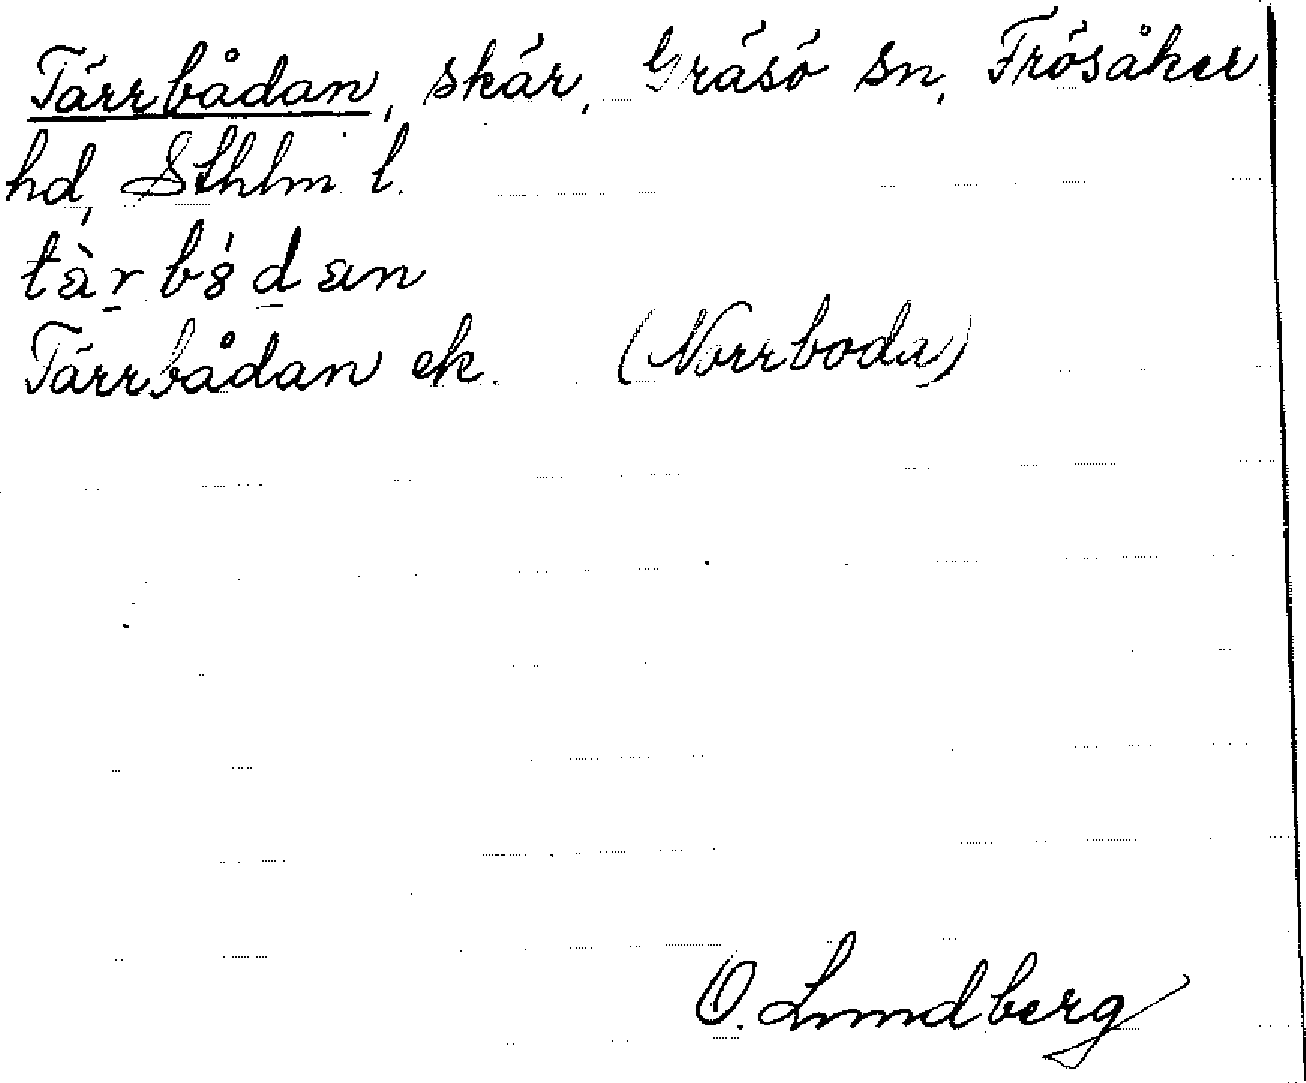 Tärrbådan, skär, Gräsö sn, Frösåker
hd, Sthlm l.
Tärrbådan ek. (Norrboda)
O. Lundberg